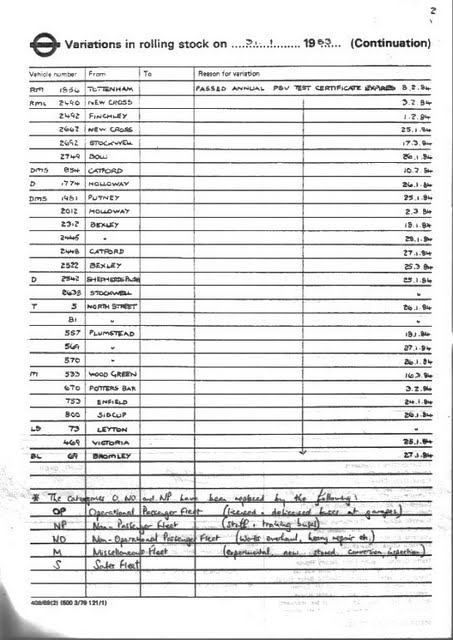 2
Variations in rolling stock on ...31.1......... 1983... (Continuation)
Vehicle number From To Reason for variation
RM TOTTENHAM PASSED ANNUAL PSV TEST CERTIFICATE EXPIRES 8.2.84
RML 2490 NEW CROSS 3.2.84
2492 FINCHLEY 1.2.84
2667 NEW CROSS 25.1.84
2692 STOCKWELL 17.3.84
2749 BOW 26.1.84
DMS 854 CATFORD 10.2.84
D 1774 HOLLOWAY 26.1.84
DMS 1981 PUTNEY 25.1.84
2012 HOLLOWAY 2.3.84
BEXLEY 84
2445 " 84
2448 CATFORD 27.1.84
2522 BEXLEY 25.3.84
D 2542 SHEPHERDS BUSH 25.1.84
2638 STOCKWELL "
T 5 NORTH STREET 26.1.84
81 " "
557 PLUMSTEAD 84
569 " 27.1.84
570 " 26.1.84
M 533 WOOD GREEN 16.3.84
670 POTTERS BAR 3.2.84
753 ENFIELD 24.1.84
800 SIDCUP 26.1.84
LS 73 LEYTON "
469 VICTORIA 25.1.84
BL 69 BROMLEY 27.1.84
* The categories O, NO and NP have been replaced by the following:
OP Operational Passenger Fleet (licensed & delicensed buses at garages)
NP Non-Passenger Fleet (staff & training buses)
NO Non-Operational Passenger Fleet (Works overhaul, heavy repair etc.)
M Miscellaneous Fleet (experimental, new, stored, conversion, inspection)
S Sales Fleet
408/69(2) (500 3/79 121/1)